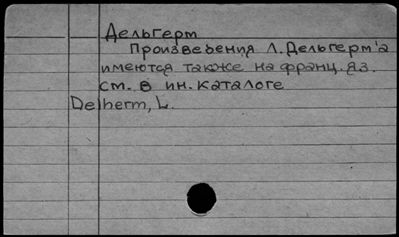 Дельгерм
Произведения Л. Дельгерм'а
имеются также на франц. яз.
см. в ин. каталоге
Delherm, L.